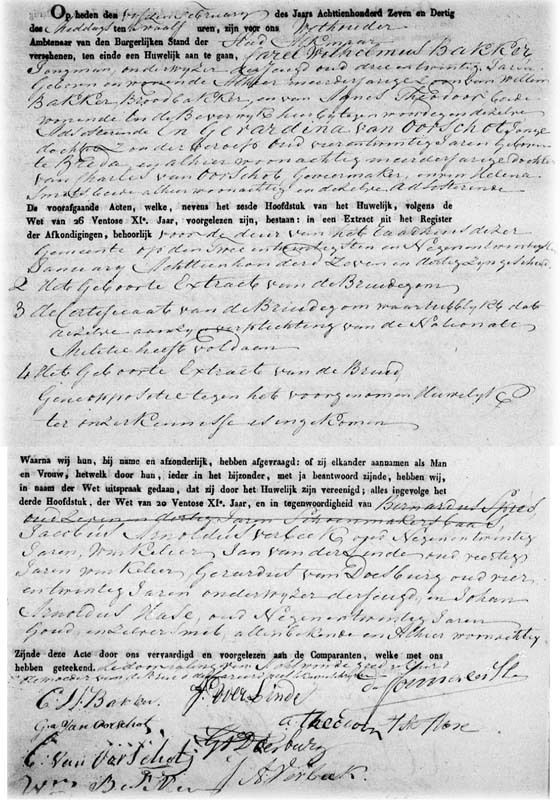 Op heden den Vyfden February des Jaars Achttienhonderd Zeven en Dertig
des middags ten twaalf uren, zijn voor ons Wethouder
Ambtenaar van den Burgerlijken Stand der Stad
verschenen, ten einde een Huwelijk aan te gaan, Carel Wilhelmus Bakker
Jongman, onderwyzer der Jeugd oud drie en twintig Jaren
Geboren en wonende Alhier meerderjarige Zoon van Willem
Bakker Broodbakker, en van Agnes Theodoor beide
wonende in de Beverwyk hier bytegenwoordig en dezelve
Adsisterende En Gerardina van Oorschot Jonge
dochter Zonder beroep Oud vier en twintig Jaren Geboren
te Breda, en alhier woonachtig meerderjarige Dochter
van Charles van Oorschot Geweermaker, en van Helena
Smits beide alhier woonachtig en dezelve Adsisterende
De voorafgaande Acten, welke, nevens het zesde Hoofdstuk van het Huwelijk, volgens de
Wet van 26 Ventose XIe. Jaar, voorgelezen zijn, bestaan: in een Extract uit het Register
der Afkondigingen, behoorlijk voor de deur van het Raadhuis dezer
Gemeente op den Twee en twintigsten en Negen en twintigsten
January Achttienhonderd Zeven en dertig Zyn geschied
2 Het Geboorte Extract van de Bruidegom
3 de Certificaat van de Bruidegom waaruit blykt dat
dezelve aan zyn verplichting van de Nationale
Militie heeft voldaan
4 Het Geboorte Extract van de Bruid
Geene oppositie tegen het voorgenomen Huwelyk
ter onzer kennisse es ingekomen
Waarna wij hun, bij name en afzonderlijk, hebben afgevraagd: of zij elkander aannamen als Man
en Vrouw, hetwelk door hun, ieder in het bijzonder, met ja beantwoord zijnde, hebben wij,
in naam der Wet uitspraak gedaan, dat zij door het Huwelijk zijn vereenigd; alles ingevolge het
derde Hoofdstuk, der Wet van 20 Ventose XIe. Jaar, en in tegenwoordigheid van Bernardus
oud Zeven en dertig Jaren Schoenmakers baas,
Jacobus Arnoldus verbeek, oud Negen en twintig
Jaren, Winkelier Jan van der Linde oud veertig
Jaren winkelier, Gerardus van Doesburg oud vier
en twintig Jaren onderwyzer der Jeugd, en Johan
Arnoldus Hase, oud Negen en twintig Jaren
Goud, en zilver Smit, allen bekende en Alhier woonachtig
Zijnde deze Acte door ons vervaardigd en voorgelezen aan de Comparanten, welke met ons
hebben geteekend. de doorhaling van
Moeder van de Bruid
C. W. Bakker J. v der Linde
G. Van Oorschot a theodoor
C. Van Oorschot G. v Doesburg
Wm Bakker J A Verbeek.